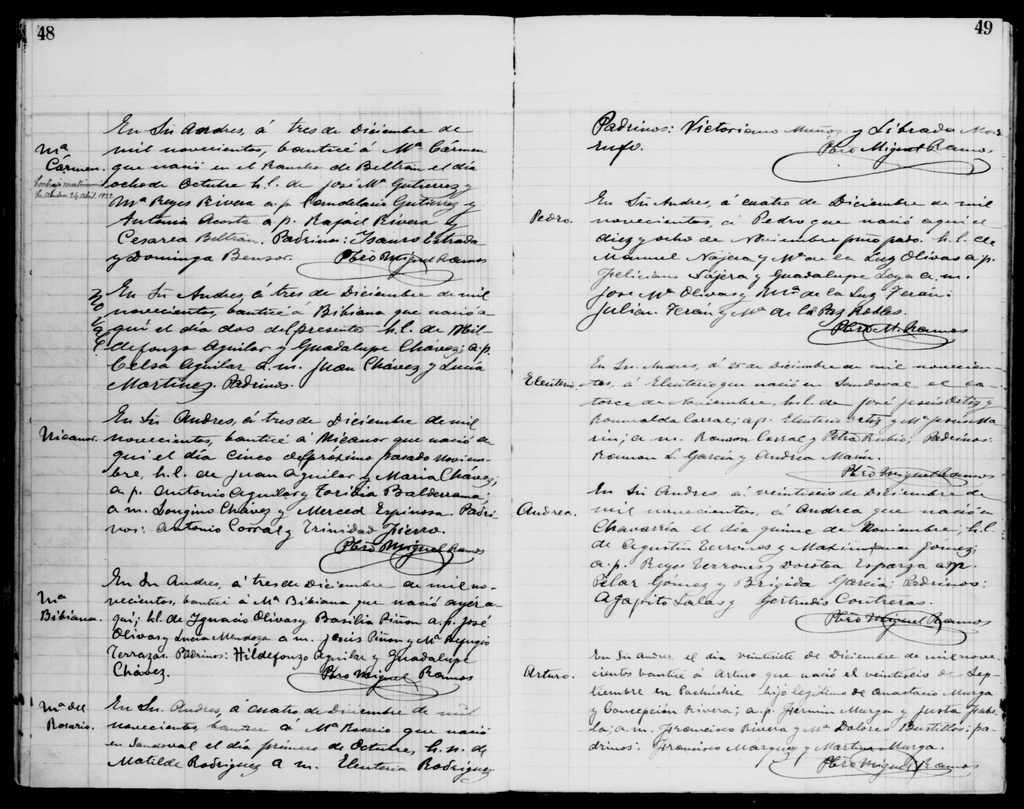 48
En Sn Andres, á tres de Diciembre de
mil novecientos, bauticé á Mª Cármen
que nació en el Rancho de Beltran el dia
ocho de Octubre h.l. de José Mª Gutierrez y
Mª Reyes Rivera a.p. Candelario Gutierrez y
Antonia Acosta a p. Rafael Rivera y
Cesarea Beltrán. Padrinos: Isauro Estrada
y Dominga
Pbro Miguel Ramos
Mª
Cármen.
En Sn Andres, á tres de Diciembre de mil
novecientos, bauticé á Bibiana que nació a
quí el día dos del presente h.l. de Hil-
defonzo Aguilar y Guadalupe Chávez; a.p.
Celso Aguilar a.m. Juan Chávez y Lucía
Martínez. Padrinos.
En Sn Andres, á tres de Diciembre de mil
Nicanor.
novecientos, bauticé á Nicanor que nació a-
quí el día cinco del próximo pasado Noviem-
bre, h.l. de Juan Aguilar y Maria Chávez;
a.p. Antonio Aguilar y Toribia Balderrama;
a m. Longino Chávez y Merced Espinosa. Padri-
nos: Antonio Corral y Trinidad Fierro.
Pbro Miguel Ramos
En Sn Andres, á tres de Diciembre de mil no-
Mª
Bibiana.
vecientos, bauticé á Mª Bibiana que nació ayer a-
quí; h.l. de Ignacio Olivas y Basilia Piñon a.p. José
Olivas y Lucia Mendoza a m. Jesús Piñon y Mª Refugio
Terrazas. Padrinos: Hildefonzo Aguilar y Guadalupe
Chávez.
Pbro Miguel Ramos
Mª del
Rosario.
En Sn. Andres, á cuatro de Diciembre de mil
novecientos bauticé á Mª Rosario que nació
en Sandoval el día primero de Octubre, h.n. de
Matilde Rodriguez a m. Eleuteria Rodriguez
49
Padrinos: Victoriano Muñoz y Librada
Pbro Miguel Ramos
Pedro.
En Sn Andres, á cuatro de Diciembre de mil
novecientos, á Pedro que nació aquí el
diez y ocho de Noviembre pmo pado. h.l. de
Manuel Najera y Mª de la Luz Olivas a.p.
Feliciano Najera y Guadalupe Loya a.m.
José Mª Olivas y Mª de la Luz Terán.
Julian Terán y Mª de la Paz Robles.
Pbro M. Ramos
Eleuterio.
En Sn. Andres, á 25 de Diciembre de mil novecien-
tos, á Eleuterio que nació en Sandoval el ca-
torce de Noviembre, h.l. de José Jesús Ortiz y
Romualda Corral; a.p. Eleuterio Ortiz y Mª Jesús Ma
rin; a m. Ramon Corral y Petra Rubio; Padrinos:
Ramon L. Garcia y Andrea Marin.
Pbro Miguel Ramos
Andrea.
En Sn Andres á veintiseis de Diciembre de
mil novecientos, á Andrea que nació en
Chavarría el día quince de Noviembre; h.l.
de Agustin Terrones y Maximiana Gómez;
a.p. Reyes Terrones y Dorotea Esparza a.p.
Pilar Gómez y Brigida Garcia: Padrinos:
Agapito Salas y Gertrudis Contreras.
Pbro Miguel Ramos
Arturo.
En Sn Andres el dia veintisiete de Diciembre de mil nove-
cientos bauticé á Arturo que nació el veintiseis de Sep-
tiembre en Pachichic hijo legítimo de Anastacio Murga
y Concepción Rivera; a.p. Fermin Murga y Justa
a.m. Francisco Rivera y Mª Dolores Bustillos: pa-
drinos: Francisco Marquez y Martina Murga.
Pbro Miguel Ramos